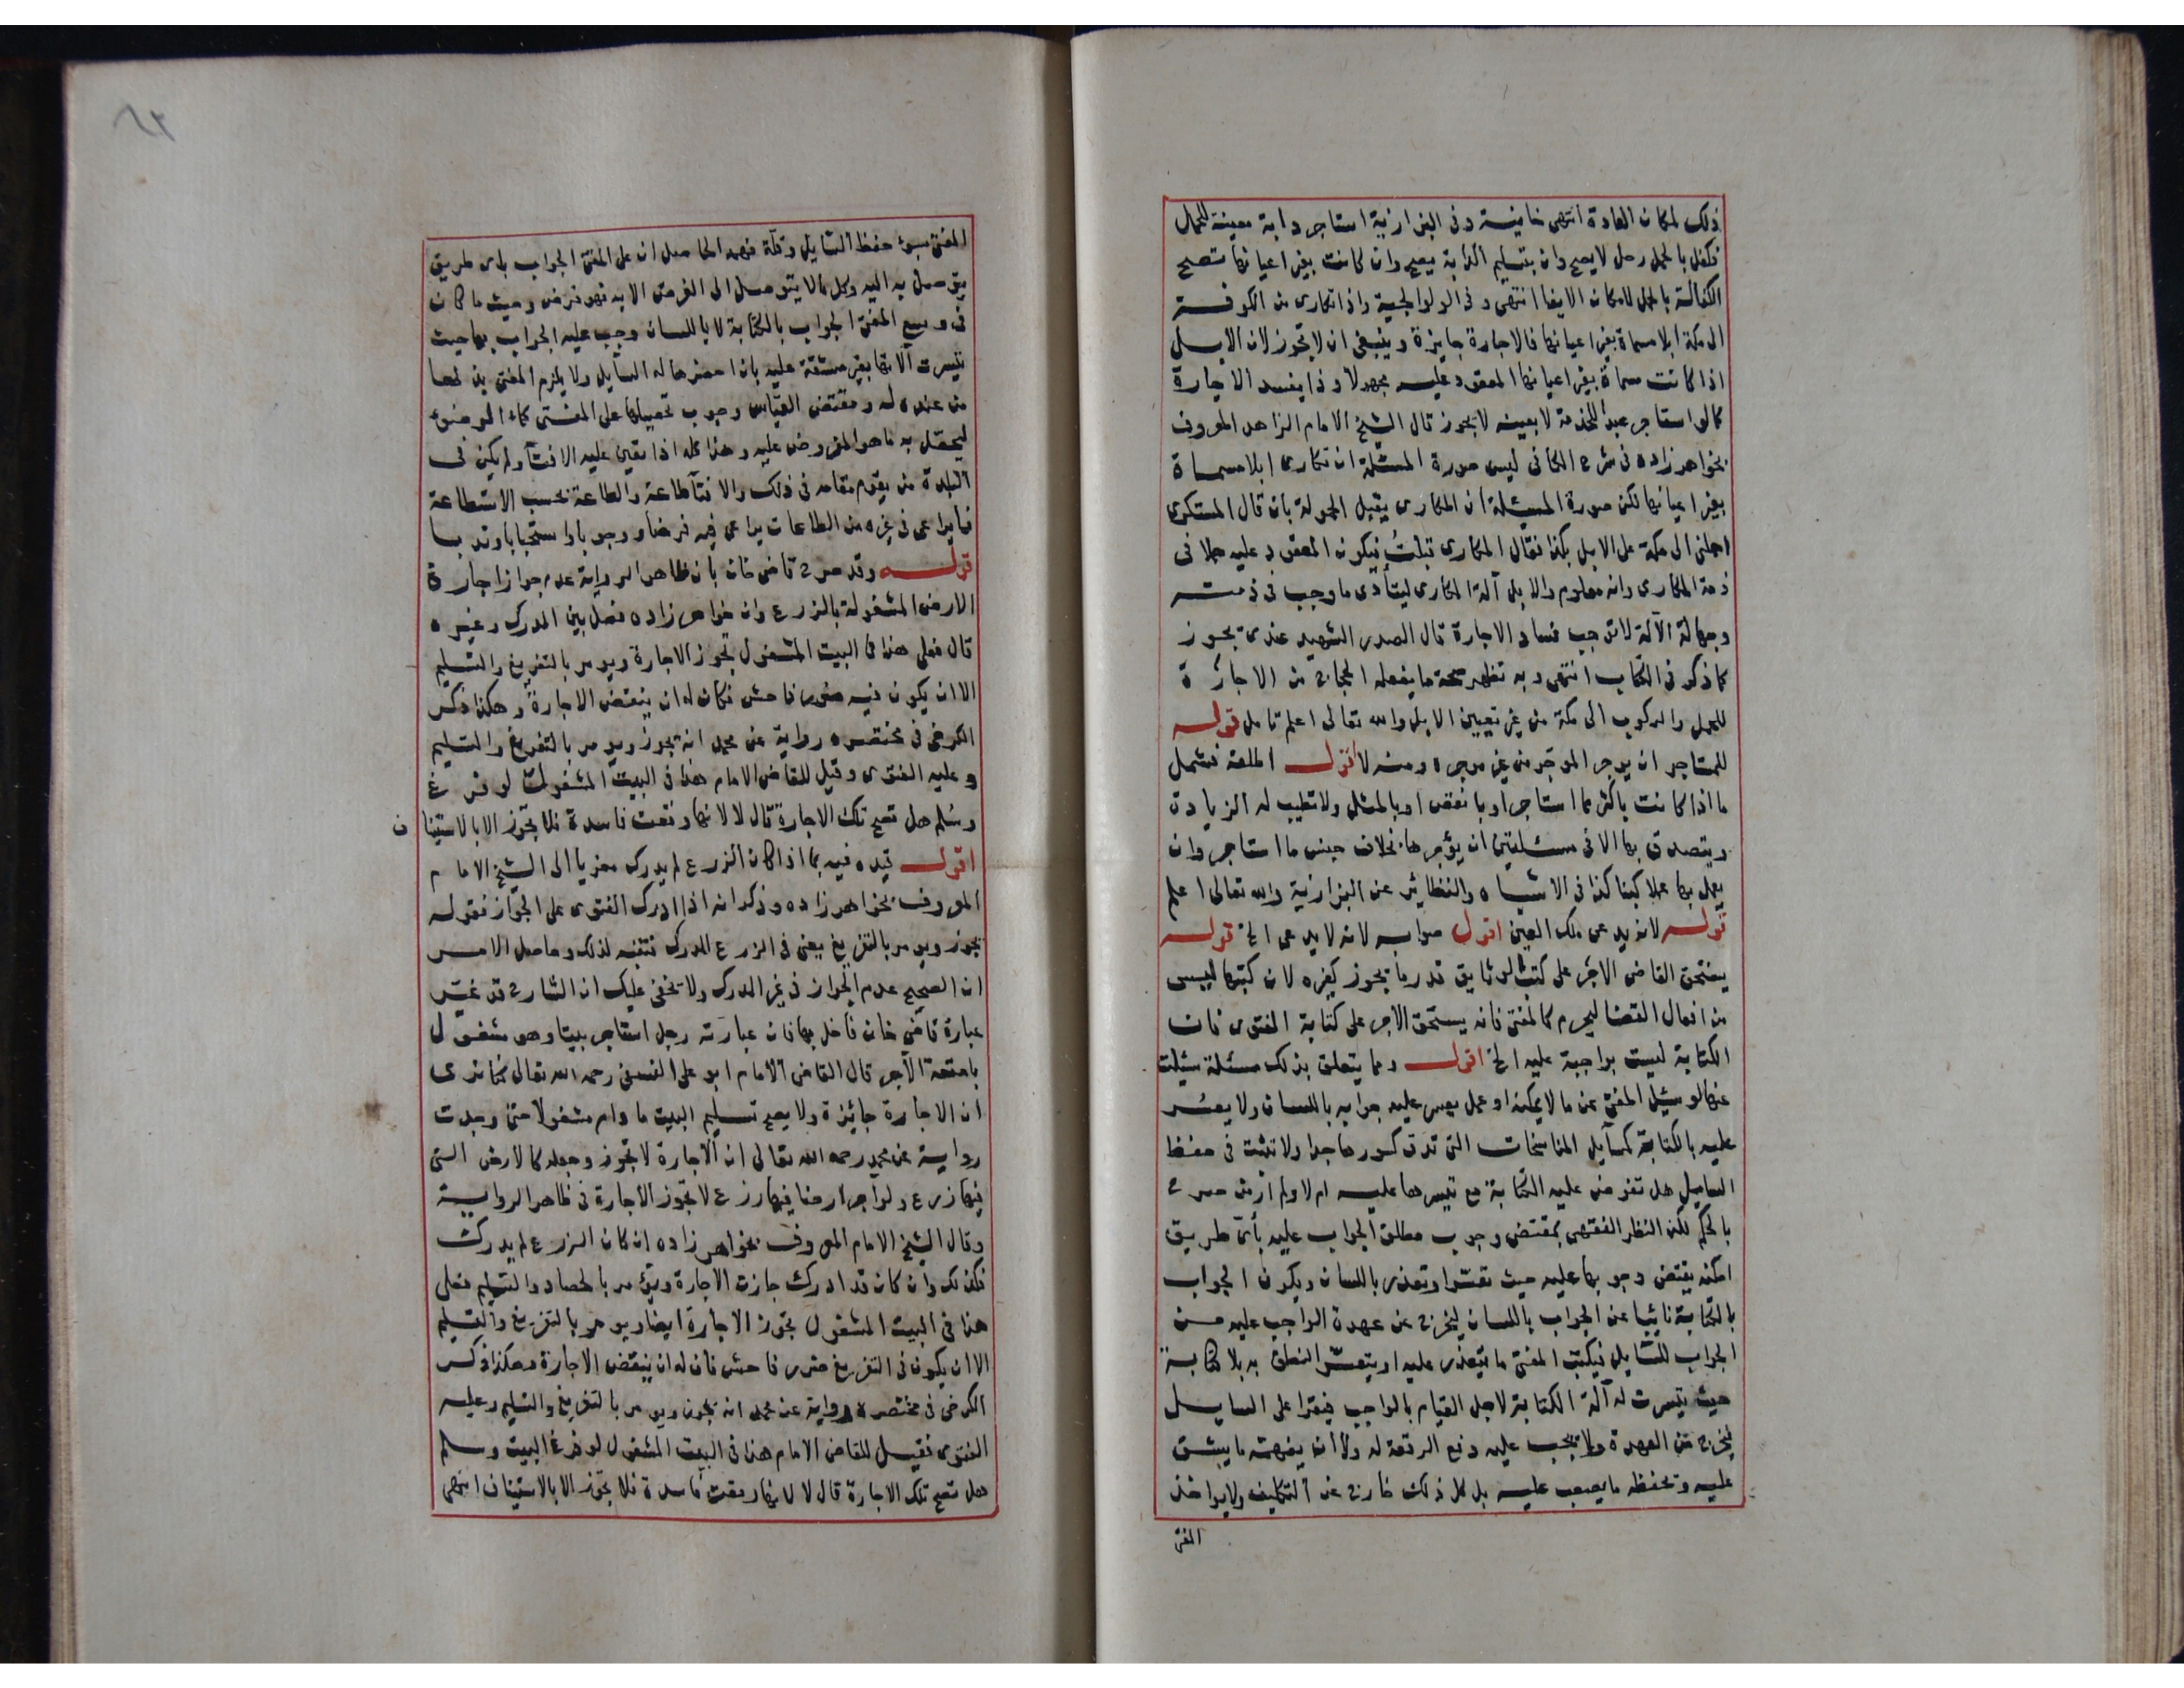 ذلك لمكان العادة انتهى خانية وفى البزازية استاجر دابة معينة للحمل
فكفل بالحمل رجل لا يصح وان بتسليم الدابة يصح وان كانت بغير اعيانها تصح
الكفالة بالحمل لامكان الايفا انتهى وفى الولوالجية واذا تكارى من الكوفة
الى مكة ابلا مسماة بغير اعيانها فالاجارة جايزة وينبغى ان لا تجوز لان الابل
اذا كانت مسماة بغير اعيانها المعقود عليه مجهولا وذا يفسد الاجارة
كما لو استاجر عبدا للخدمة لا بعينه لا يجوز قال الشيخ الامام الزاهد المعروف
بخواهر زاده فى شرح الكافى ليس صورة المسئلة ان تكارى ابلا مسماة
بغير اعيانها لكن صورة المسئلة ان المكارى يقبل الحمولة بان قال المستكرى
احملنى الى مكة على الابل بكذا فقال المكارى قبلتُ فيكون المعقود عليه حملا فى
ذمة المكارى وانه معلوم والابل آلة المكارى ليتأدى ما وجب فى ذمته
وجهالة الآلة لا توجب فساد الاجارة قال الصدر الشهيد عندى يجوز
كما ذكر فى الكتاب انتهى وبه تظهر صحة ما يفعله الحجاج من الاجارة
للحمل والركوب الى مكة من غير تعيين الابل والله تعالى اعلم تامل قوله
للمستاجر ان يوجر الموجر من غير موجره ومنه لا اقول اطلقه فشمل
ما اذا كانت باكثر مما استاجر او بانقص او بالمثل ولا تطيب له الزيادة
ويتصدق بها الا فى مسئلتين ان يؤجرها بخلاف جنس ما استاجر وان
يعمل بها عملا كبنا كذا فى الاشباه والنظائر عن البزازية والله تعالى اعلم
قوله لانه يدعى ملك العين اقول صوابه لانه لا يدعى الخ قوله
يستحق القاضى الاجر على كتب الوثايق قدر ما يجوز لغيره لان كتبها ليس
من افعال القضا ليحرم كالمفتى فانه يستحق الاجر على كتابة الفتوى فان
الكتابة ليست بواجبة عليه الخ اقول ومما يتعلق بذلك مسئلة سئلت
عنها لو سئل المفتى عن ما لا يمكنه او عمل يعسر عليه جوابه باللسان ولا يعسر
عليه بالكتابة كمسآيل المناسخات التى تدق كسورها جدا ولا تثبت فى حفظ
السايل هل تفرض عليه الكتابة مع تيسرها عليه ام لا ولم ار من صرح
بالحكم لكن النظر الفقهى بمقتضى وجوب مطلق الجواب عليه بأى طريق
امكنه يقتضى وجوبها عليه حيث تعسر او تعذر باللسان ويكون الجواب
بالكتابة نائبا عن الجواب باللسان ليخرج عن عهدة الواجب عليه من
الجواب للسايل فيكتب المفتى ما يتعذر عليه او يتعسر النطق به بلا كتابة
حيث تيسرت له آلة الكتابة لاجل القيام بالواجب فيقرا على السايل
ليخرج عن العهدة ولا يجب عليه دفع الرقعة له ولا ان يفهمه ما يشق
عليه وتحفظه ما يصعب عليه بل كل ذلك خارج عن التكليف ولا يواخذ
المفتى
المفتى بسوء حفظ السايل وقلة فهمه الحاصل ان على المفتى الجواب باى طريق
يتوصل به اليه وكل ما لا يتوصل الى الفرض الا به فهو فرض وحيث ما كان
فى وسع المفتى الجواب بالكتابة لا باللسان وجب عليه الجواب بها حيث
تيسرت آلاتها بغير مشقة عليه بان احضرها له السايل ولا يلزم المفتى بذلها
من عنده له ومقتضى القياس وجوب تحصيلها على المفتى كماء الوضوء
ليحصل به ما هو المفروض عليه وهذا كله اذا تعين عليه الافتآ ولم يكن فى
البلدة من يقوم مقامه فى ذلك والافتآ طاعة والطاعة بحسب الاستطاعة
فما يراعى فى غيره من الطاعات يراعى فيه فرضا ووجوبا واستحبابا وندبا
قوله وقد صرح قاضى خان بان ظاهر الرواية عدم جواز اجارة
الارض المشغولة بالزرع وان خواهر زاده فصل بين المدرك وغيره
قال فعلى هذا فى البيت المشغول تجوز الاجارة ويومر بالتفريغ والتسليم
الا ان يكون فيه ضرر فاحش فكان له ان ينقض الاجارة وهكذا ذكر
الكرخى فى مختصره رواية عن محمد انه يجوز ويومر بالتفريغ والتسليم
وعليه الفتوى وقيل للقاضى الامام هذا فى البيت المشغول لو فرغ
وسُلم هل تصح تلك الاجارة قال لا لانها وقعت فاسدة فلا تجوز الا بالاستينا
ف
اقول قيده فيه بما اذا كان الزرع لم يدرك معزيا الى الشيخ الامام
المعروف بخواهر زاده وذكر انه اذا ادرك الفتوى على الجواز فقوله
يجوز ويومر بالتفريغ يعنى فى الزرع المدرك فتنبه لذلك وحاصل الامر
ان الصحيح عدم الجواز فى غير المدرك ولا يخفى عليك ان الشارح قد غيّر
عبارة قاضى خان فاخل بها فان عبارته رجل استاجر بيتا وهو مشغول
بامتعة الآجر قال القاضى الامام ابو على النسفى رحمه الله تعالى كنا نرى
ان الاجارة جائزة ولا يصح تسليم البيت ما دام مشغولا حتى وجدت
رواية عن محمد رحمه الله تعالى ان الاجارة لا تجوز وجعله كالارض التى
فيها زرع ولو آجر ارضا فيها زرع لا تجوز الاجارة فى ظاهر الرواية
وقال الشيخ الامام المعروف بخواهر زاده ان كان الزرع لم يدرك
فكذلك وان كان قد ادرك جازت الاجارة ويؤمر بالحصاد والتسليم فعلى
هذا فى البيت المشغول تجوز الاجارة ايضا ويومر بالتفريغ والتسليم
الا ان يكون فى التفريغ ضرر فاحش فان له ان ينقض الاجارة وهكذا ذكر
الكرخى فى مختصره رواية عن محمد انه يجوز ويومر بالتفريغ والتسليم وعليه
الفتوى فقيل للقاضى الامام هذا فى البيت المشغول لو فرغ البيت وسلم
هل تصح تلك الاجارة قال لا لانها وقعت فاسدة فلا تجوز الا بالاستيناف انتهى